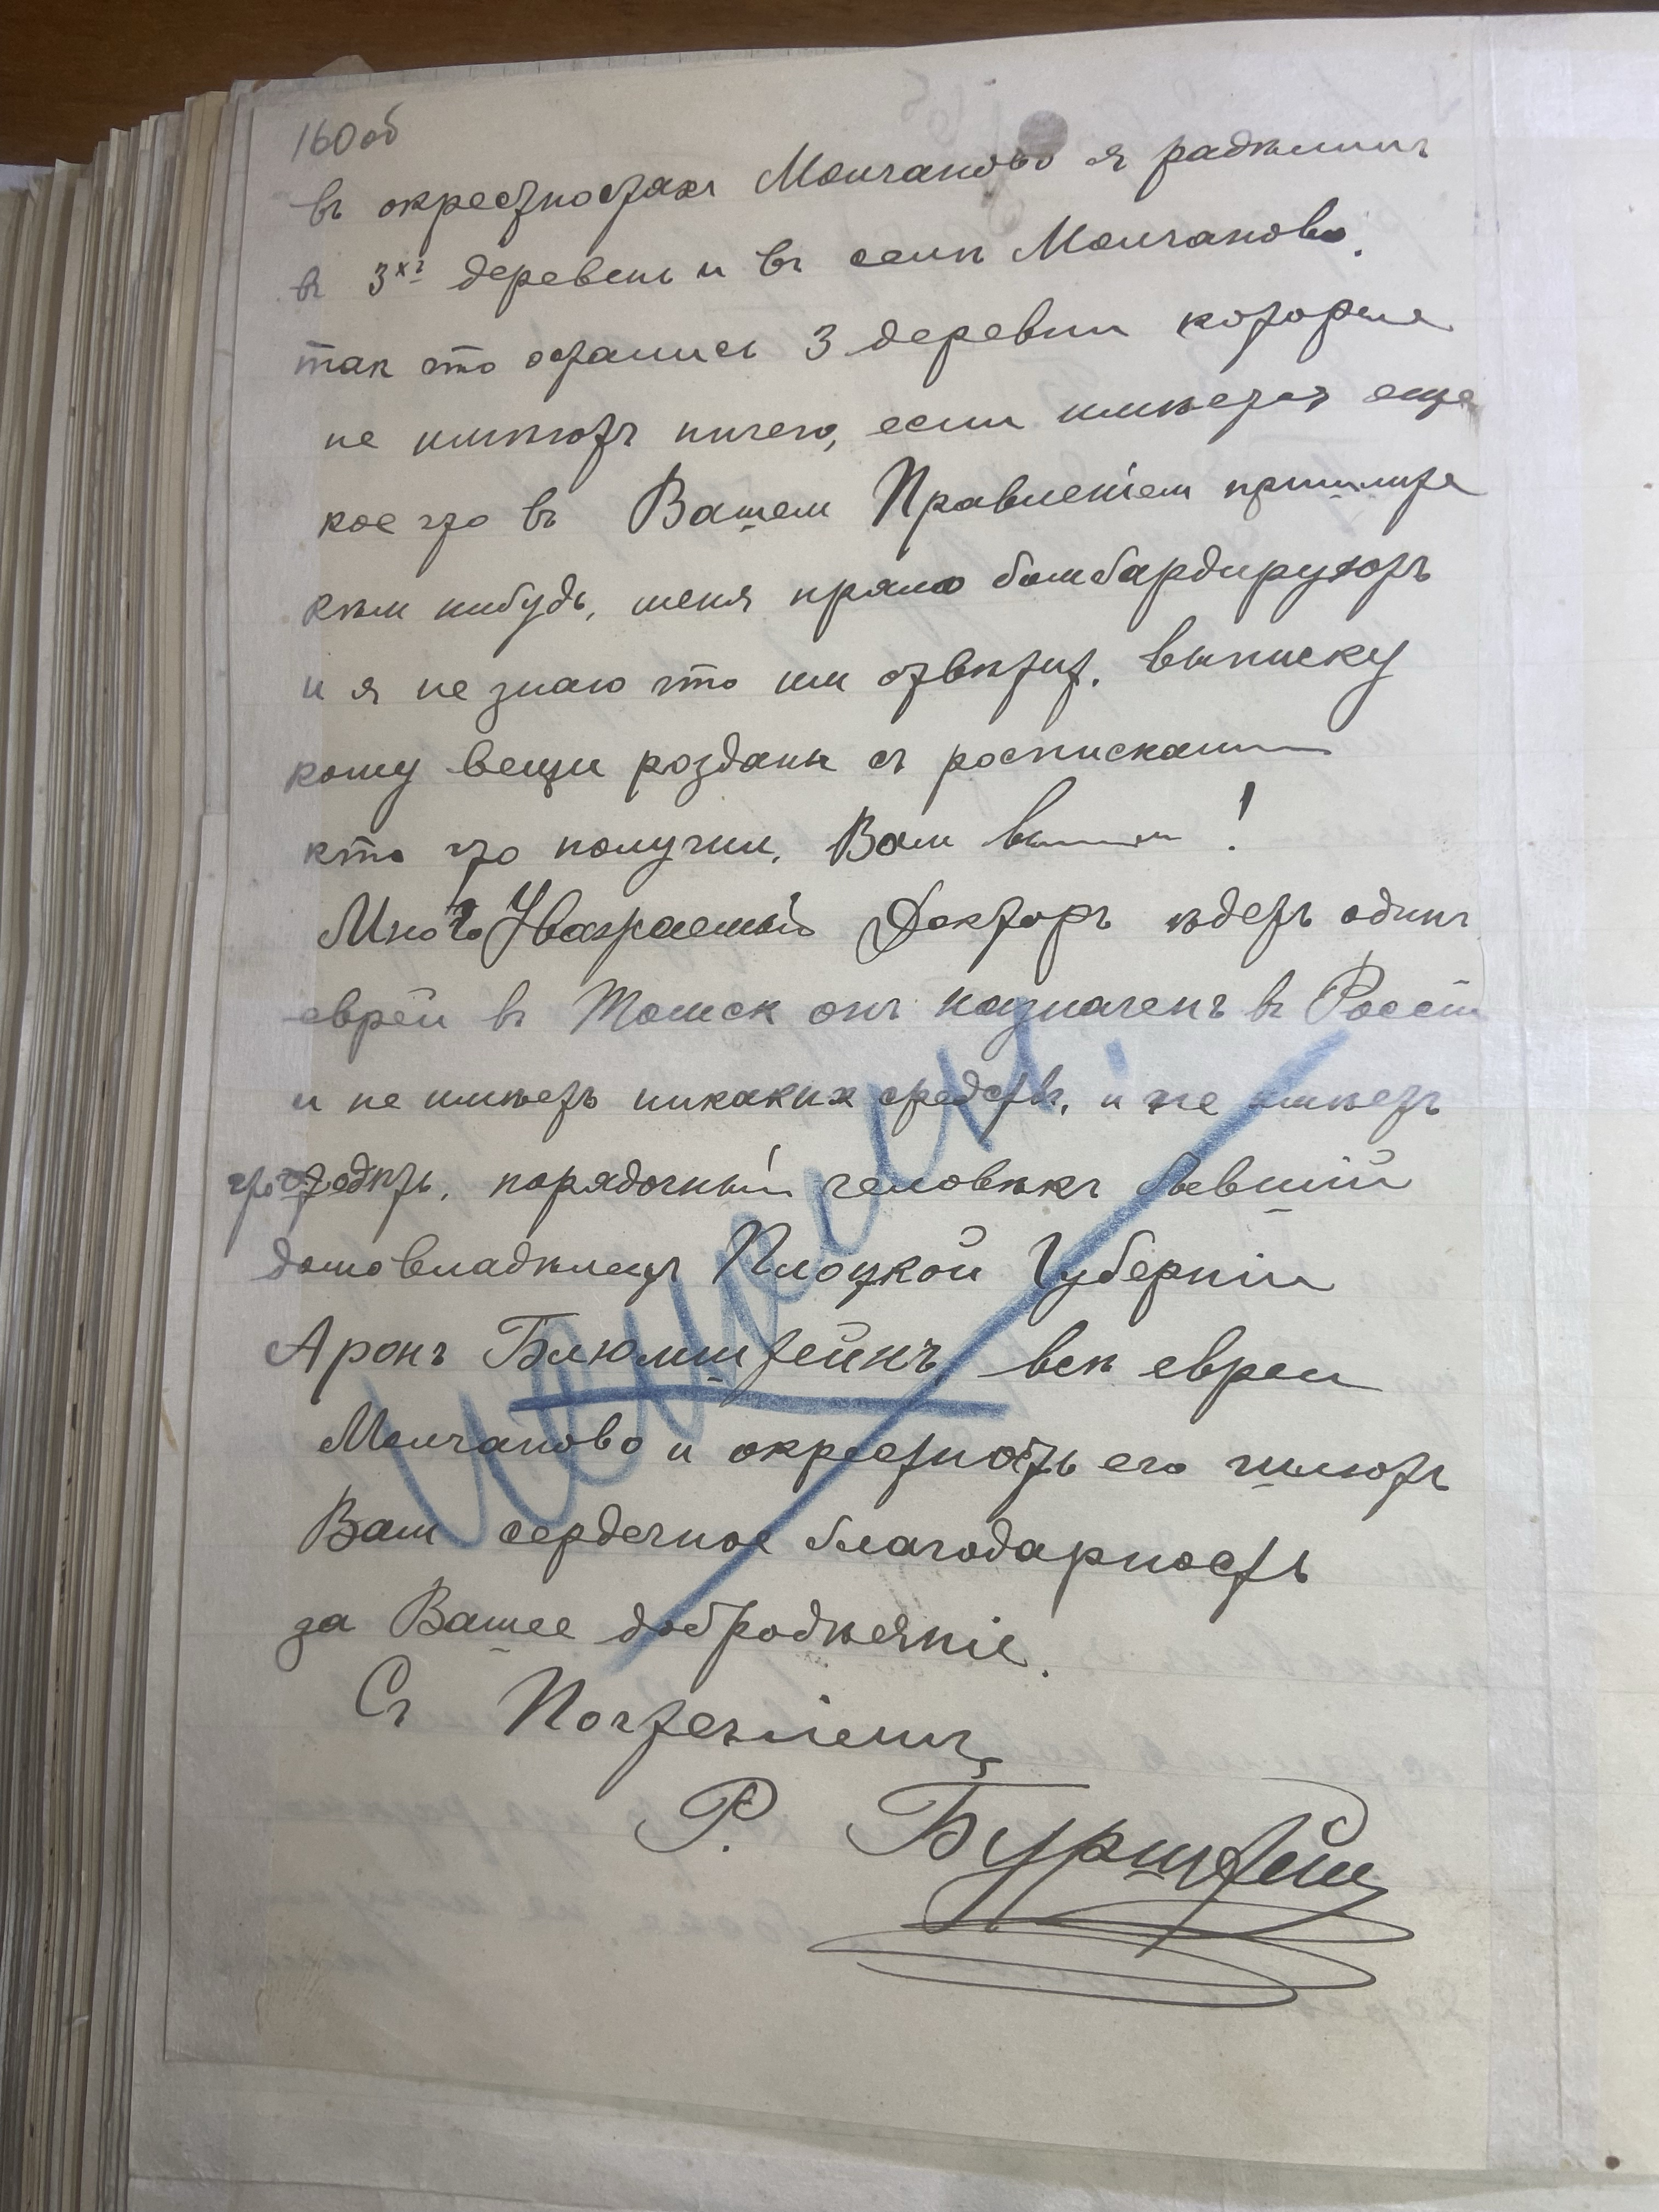 160об
въ окрестностахъ Молчаново я радѣлилъ
въ 3хъ деревень и въ селѣ Молчаново.
так что остались 3 деревни которые
не имѣютъ ничего, если имѣется еще
кое что въ Вашем Правленіем пришлите
кѣм нибудь, меня прямо бомбардируютъ
и я не знаю что им отвѣтит. выписку
кому вещи розданы съ росписками
кто что получил, Вам
!
Много Уважаемый Докторъ ѣдетъ одинъ
еврей въ Томск онъ назначенъ въ Россіи
и не имѣетъ никаких средствъ, и не имѣетъ
что одѣть, порядочный человѣкъ бывшій
домовладѣлецъ Плоцкой Губерніи
Аронъ Блюмштейнъ, всѣ евреи
Молчаново и окрестность его шлютъ
Вам сердечное благодарность
за Вашее
Съ Почтеніемъ
Р. Бурштейн